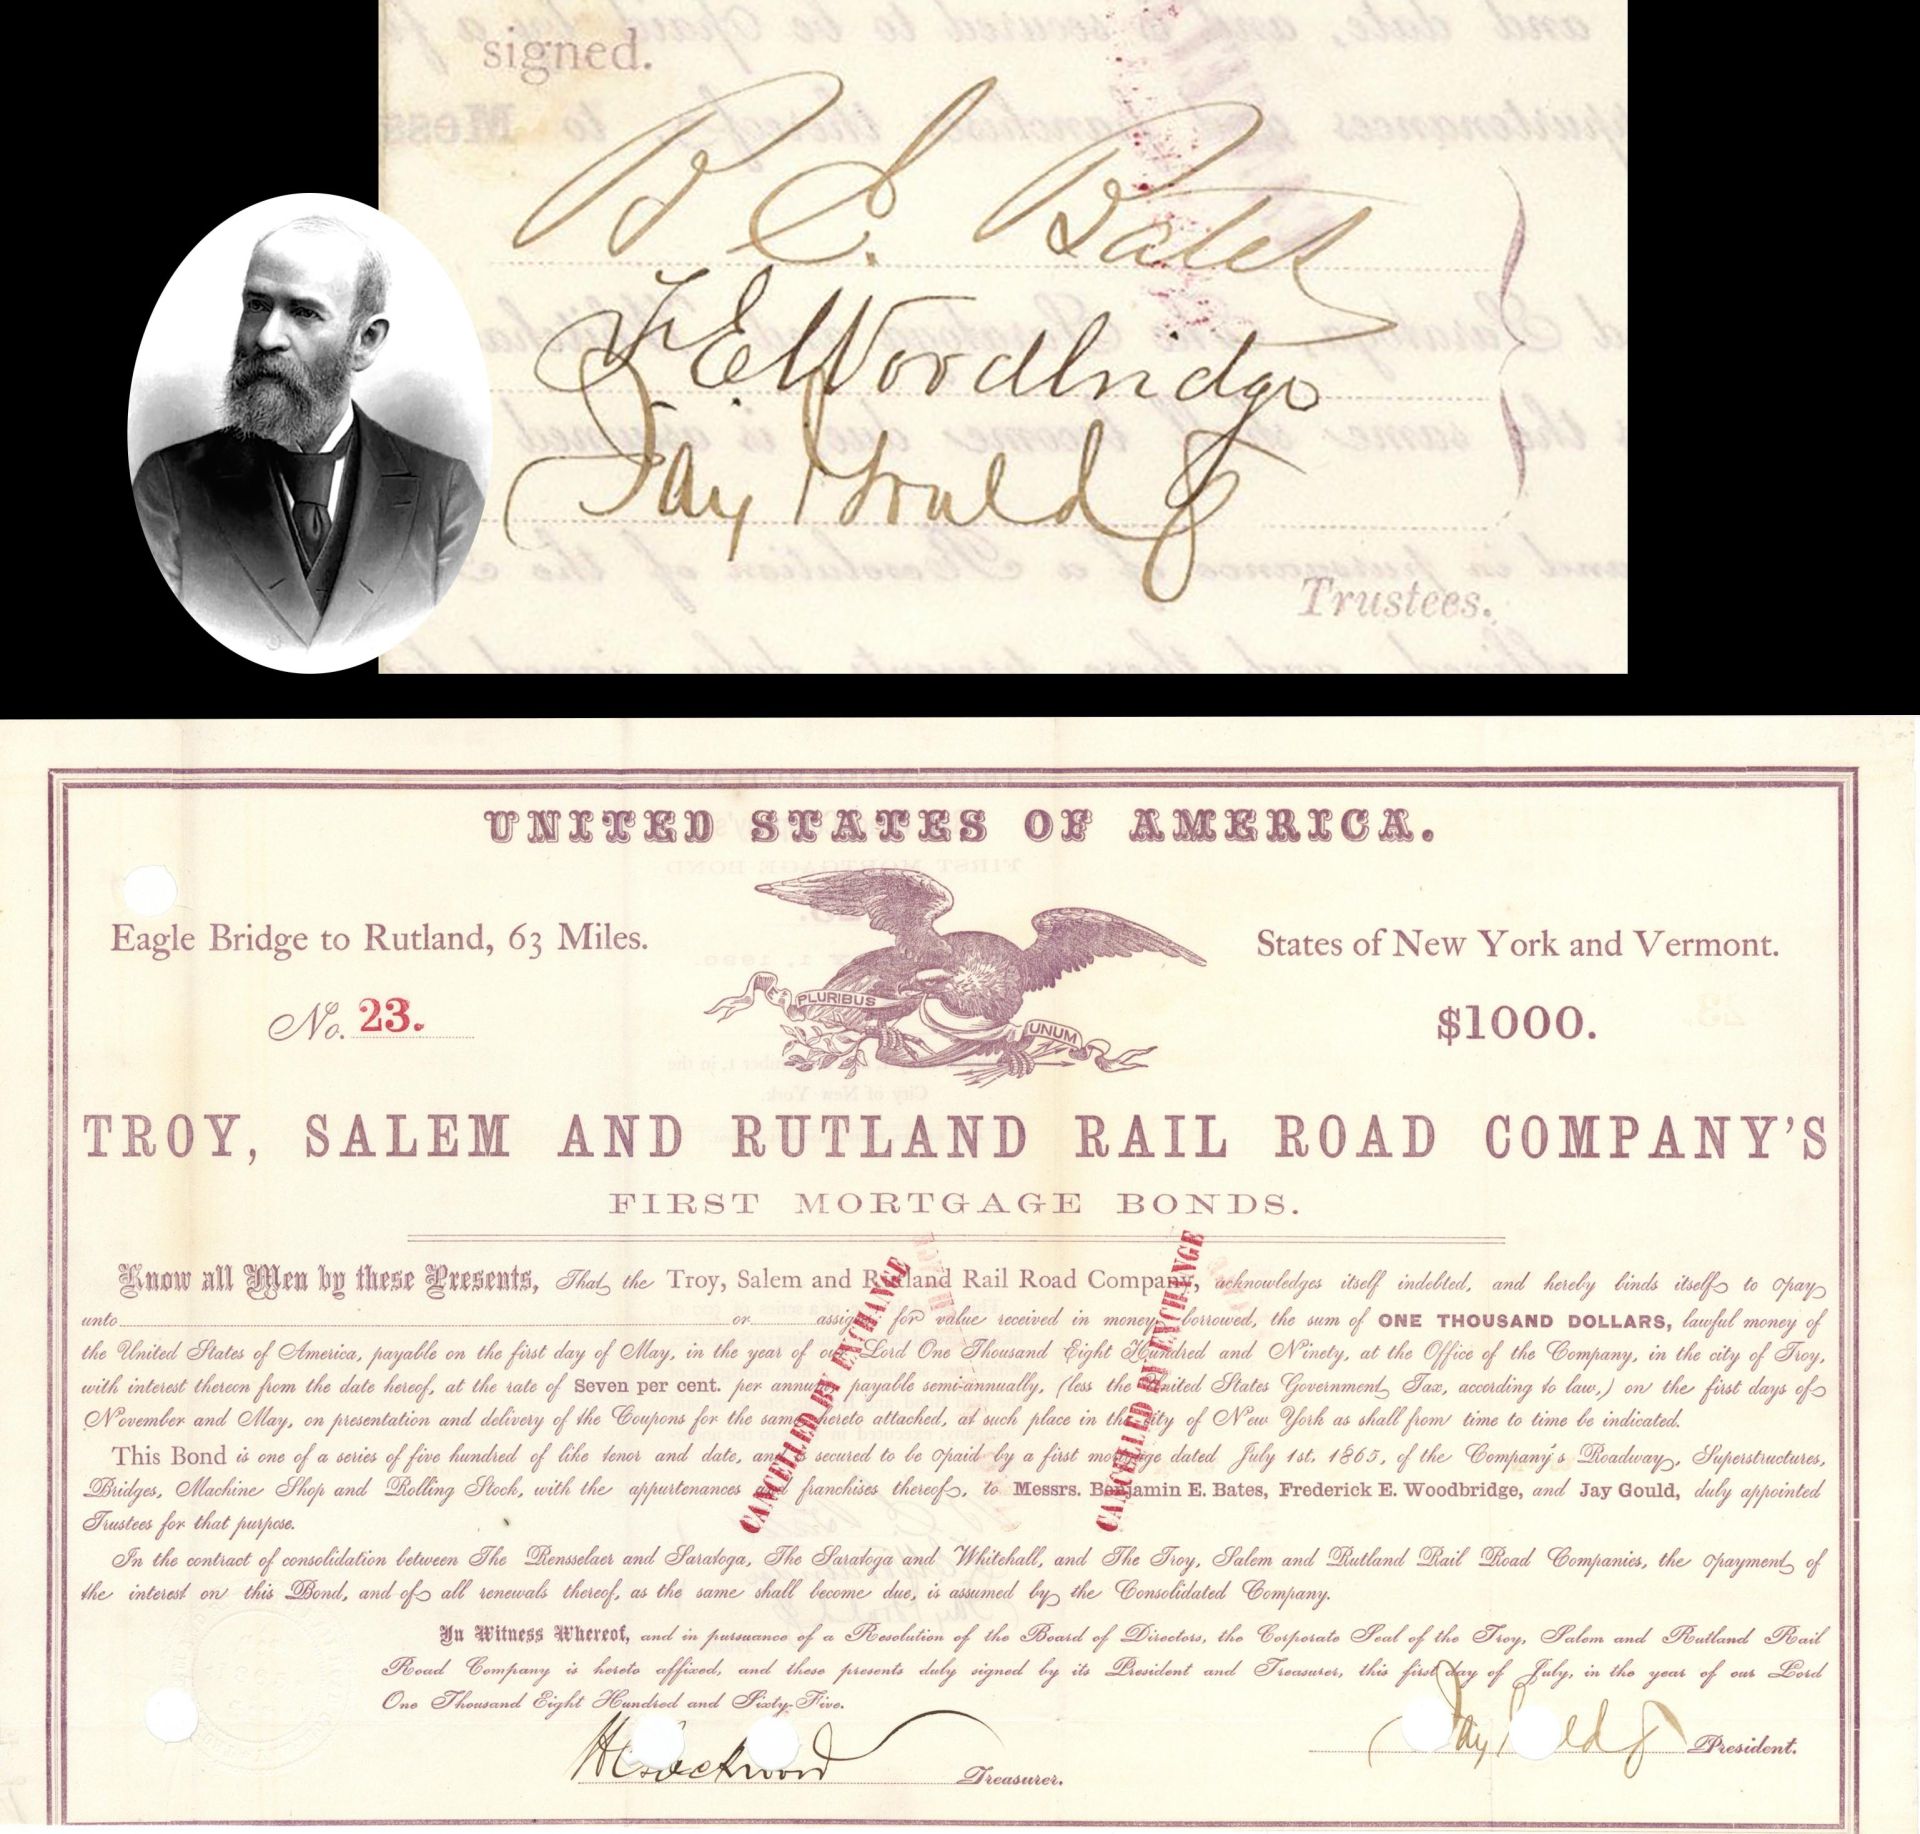 signed.
B E. Bates
F. E. Woodbridge
Jay Gould
Trustees.
UNITED STATES OF AMERICA.
Eagle Bridge to Rutland, 63 Miles.
States of New York and Vermont.
E PLURIBUS UNUM
No. 23.
$1000.
TROY, SALEM AND RUTLAND RAIL ROAD COMPANY'S
FIRST MORTGAGE BONDS.
Know all Men by these Presents, That the Troy, Salem and Rutland Rail Road Company, acknowledges itself indebted, and hereby binds itself to pay
unto or assigns for value received in money borrowed, the sum of ONE THOUSAND DOLLARS, lawful money of
the United States of America, payable on the first day of May, in the year of our Lord One Thousand Eight Hundred and Ninety, at the Office of the Company, in the city of Troy,
with interest thereon from the date hereof, at the rate of Seven per cent. per annum, payable semi-annually, (less the United States Government Tax, according to law,) on the first days of
November and May, on presentation and delivery of the Coupons for the same hereto attached, at such place in the city of New York as shall from time to time be indicated.
This Bond is one of a series of five hundred of like tenor and date, and is secured to be paid by a first mortgage dated July 1st, 1865, of the Company's Roadway, Superstructures,
Bridges, Machine Shop and Rolling Stock, with the appurtenances and franchises thereof, to Messrs. Benjamin E. Bates, Frederick E. Woodbridge, and Jay Gould, duly appointed
Trustees for that purpose.
In the contract of consolidation between The Rensselaer and Saratoga, The Saratoga and Whitehall, and The Troy, Salem and Rutland Rail Road Companies, the payment of
the interest on this Bond, and of all renewals thereof, as the same shall become due, is assumed by the Consolidated Company.
In Witness Whereof, and in pursuance of a Resolution of the Board of Directors, the Corporate Seal of the Troy, Salem and Rutland Rail
Road Company is hereto affixed, and these presents duly signed by its President and Treasurer, this first day of July, in the year of our Lord
One Thousand Eight Hundred and Sixty-Five.
CANCELLED BY EXCHANGE
CANCELLED BY EXCHANGE
Lockwood Treasurer.
Jay Gould President.